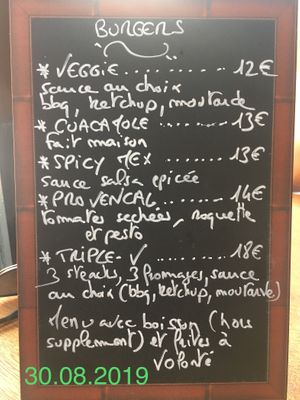 BURGERS
* VEGGIE.......... 12€
sauce au choix
bbq, ketchup, moutarde
* GUACAMOLE ....... 13€
fait maison
* SPICY MEX ....... 13€
sauce salsa épicée
* PROVENCAL ...... 14€
tomates sechées, roquette
et pesto
* TRIPLE-V ........ 18€
3 steacks, 3 fromages, sauce
au choix (bbq, ketchup, moutarde)
Menu avec boisson (hors
supplement) et frites à
volonté
30.08.2019